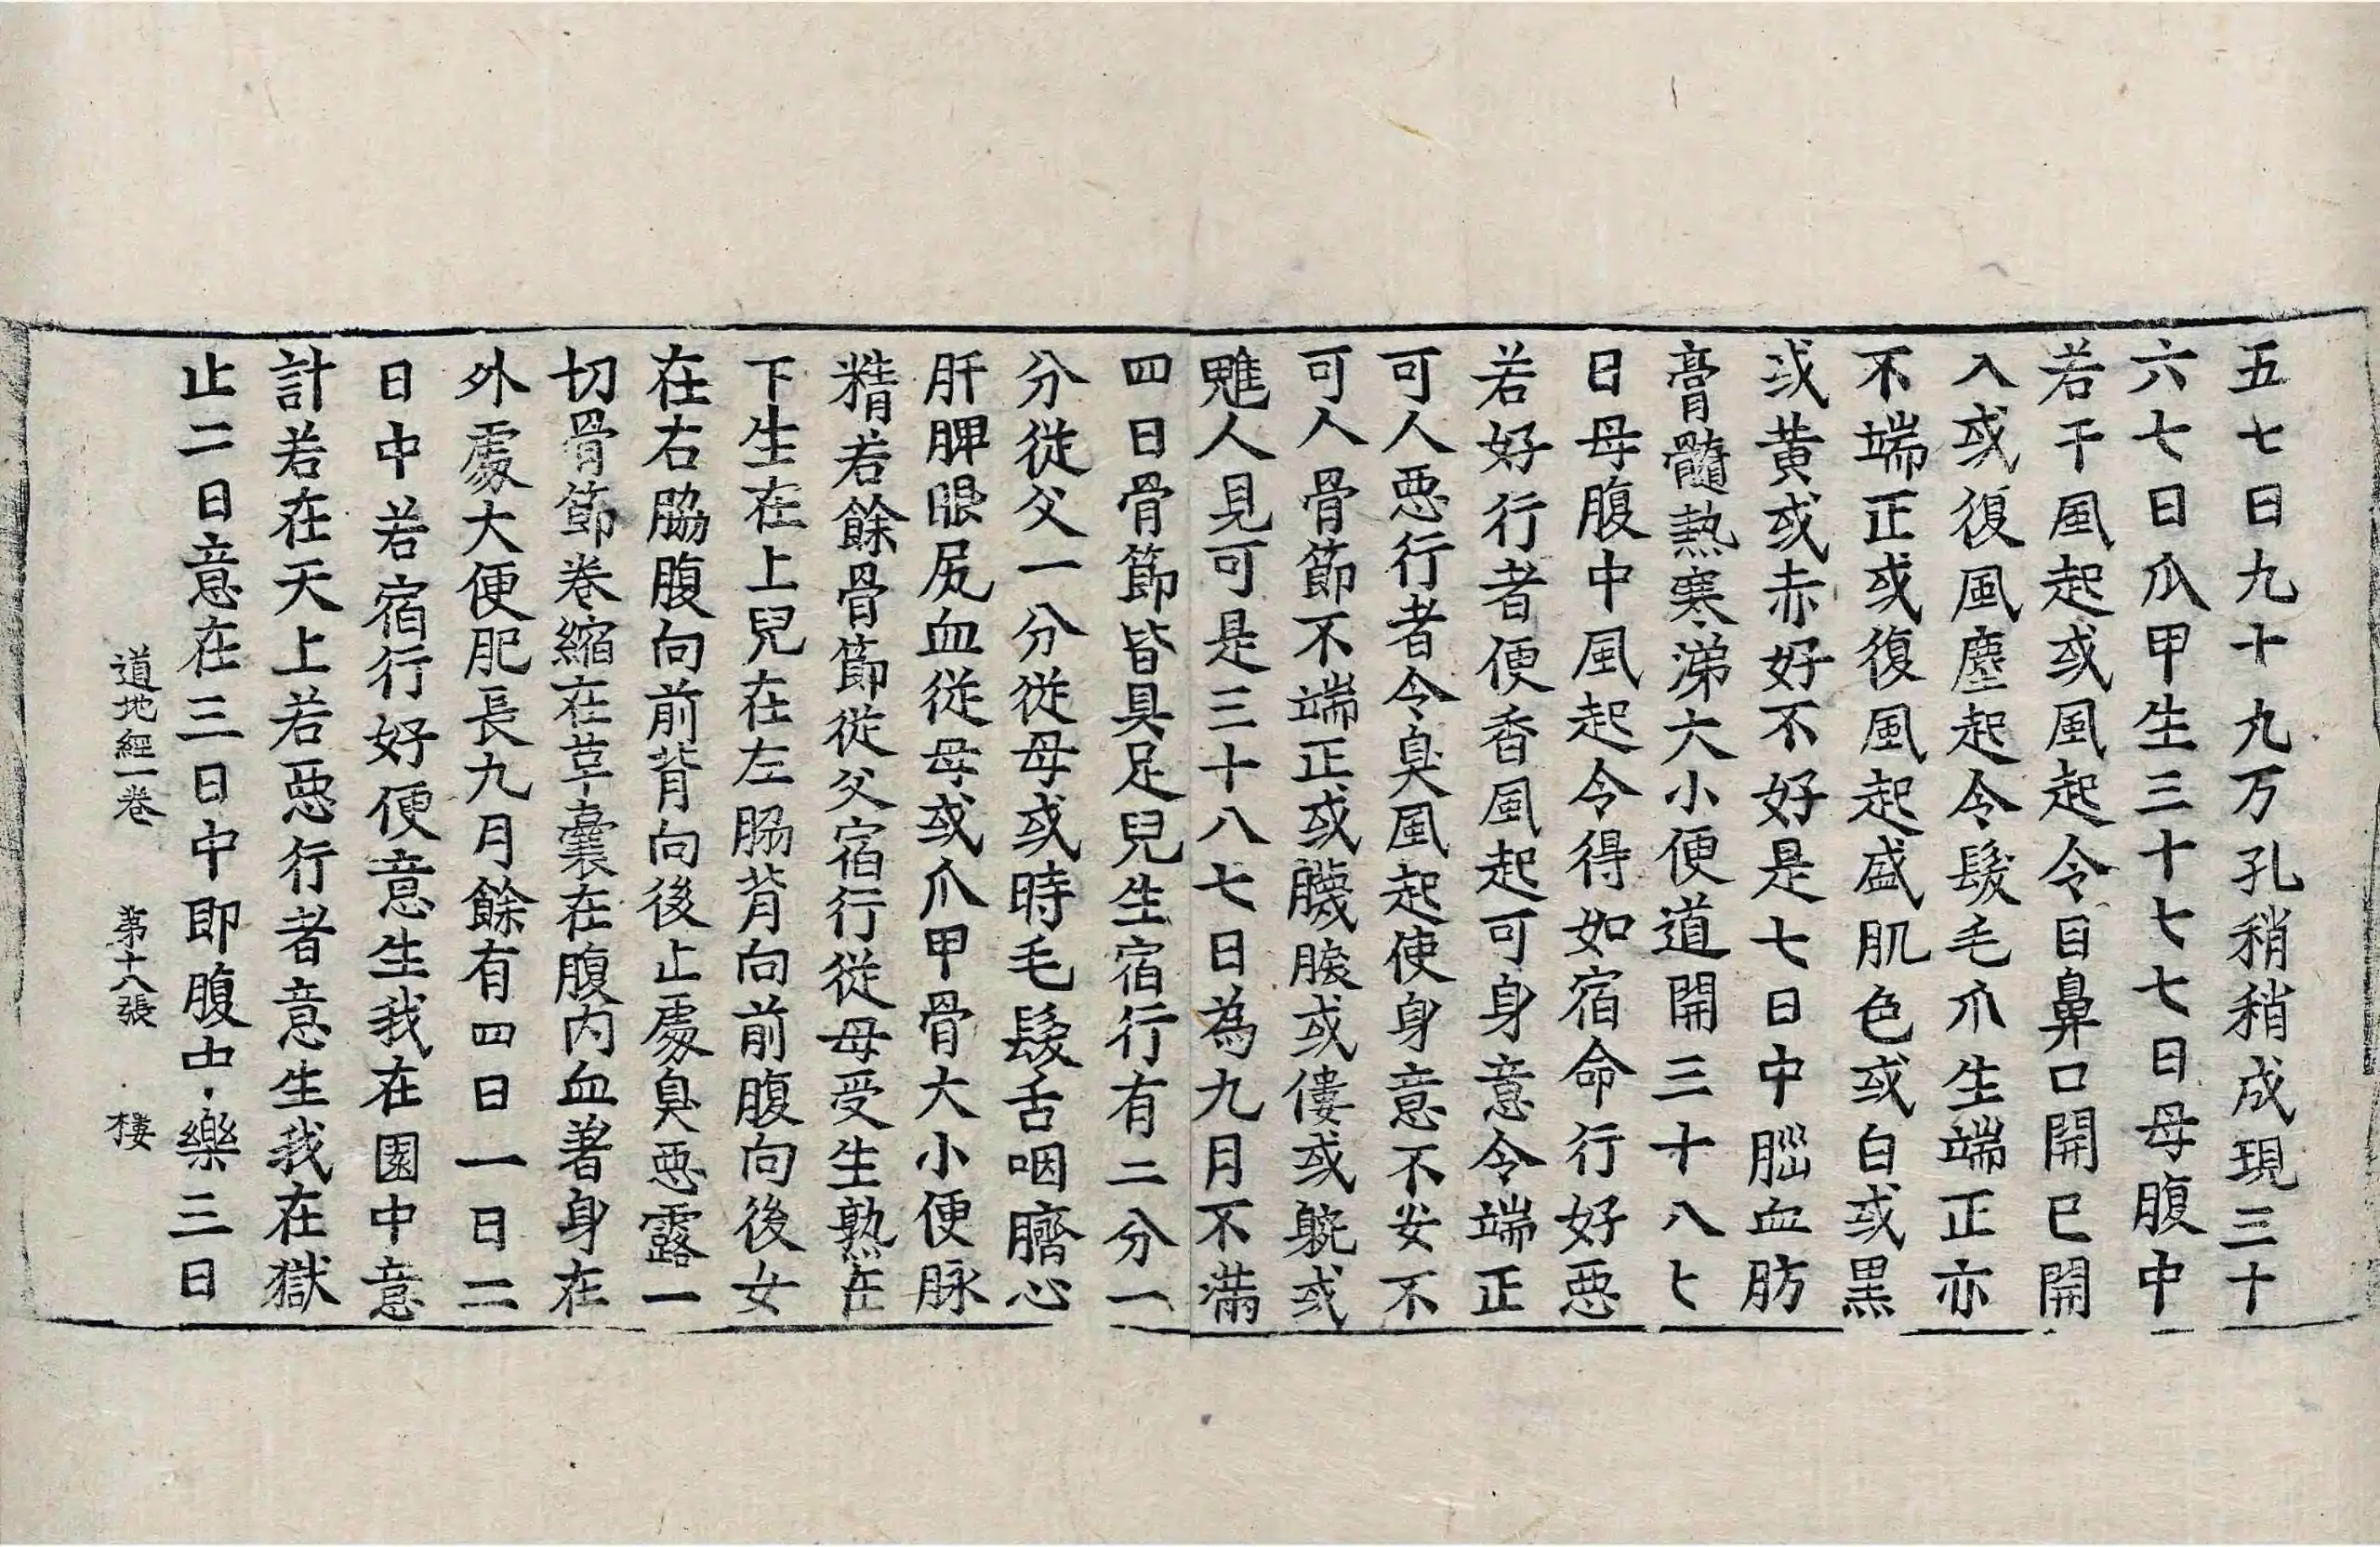 五七日九十九万孔稍稍成現三十
六七日爪甲生三十七七日母腹中
若干風起或風起令目鼻口開已開
入或復風塵起令髮毛爪生端正亦
不端正或復風起盛肌色或白或黑
或黄或赤好不好是七日中腦血肪
膏髓熱寒涕大小便道開三十八七
日母腹中風起令得如宿命行好惡
若好行者便香風起可身意令端正
可人惡行者令臭風起使身意不安不
可人骨節不端正或臗𦟛或僂或躄或
魋人見可是三十八七日為九月不滿
四日骨節皆具足兒生宿行有二分一
分從父一分從母或時毛髮舌咽臍心
肝脾眼尻血從母或爪甲骨大小便脉
精若餘骨節從父宿行從母受生熟在
下生在上兒在左脇背向前腹向後女
在右脇腹向前背向後止處臭惡露一
切骨節卷縮在革囊在腹内血著身在
外處大便肥長九月餘有四日一日二
日中若宿行好便意生我在園中意
計若在天上若惡行者意生我在獄
止二日意在三日中即腹中樂三日
道地經一卷 第十八張 棲